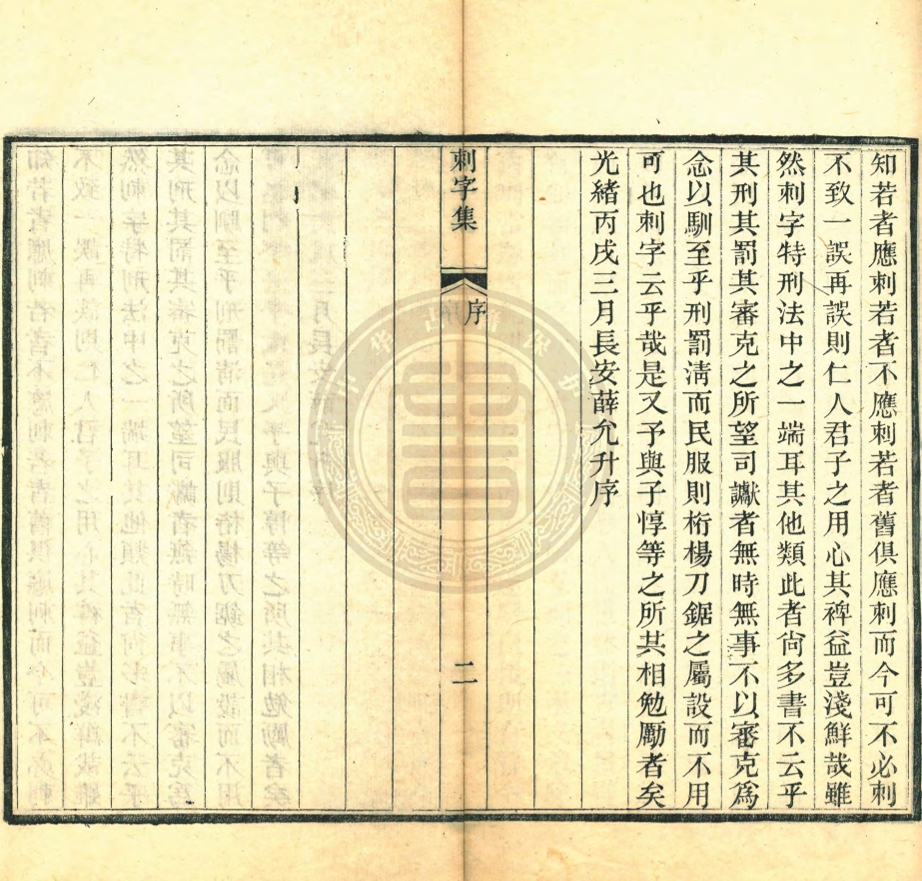 知若者應刺若者不應刺若者舊俱應刺而今可不必刺
不致一誤再誤則仁人君子之用心其裨益豈淺鮮哉雖
然刺字特刑法中之一端耳其他類此者尙多書不云乎
其刑其罰其審克之所望司讞者無時無事不以審克爲
念以馴至乎刑罰淸而民服則桁楊刀鋸之屬設而不用
可也刺字云乎哉是又予與子惇等之所共相勉勵者矣
光緖丙戌三月長安薛允升序
刺字集
序
二